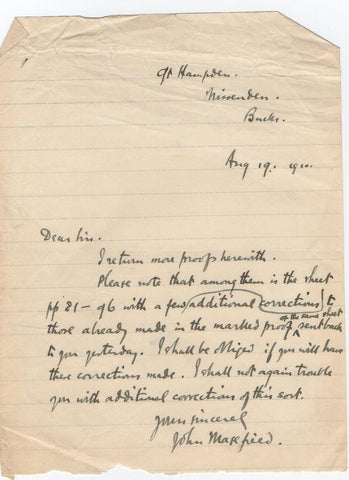 Gt Hampden.
Missenden.
Bucks.
Aug 19. 1910.
Dear Sir.
I return more proofs herewith.
Please note that among them is the sheet
pp 81-96 with a few additional corrections to
those already made in the marked proof of the same sheet sent back
to you yesterday. I shall be obliged if you will have
these corrections made. I shall not again trouble
you with additional corrections of this sort.
Yours sincerely
John Masefield.